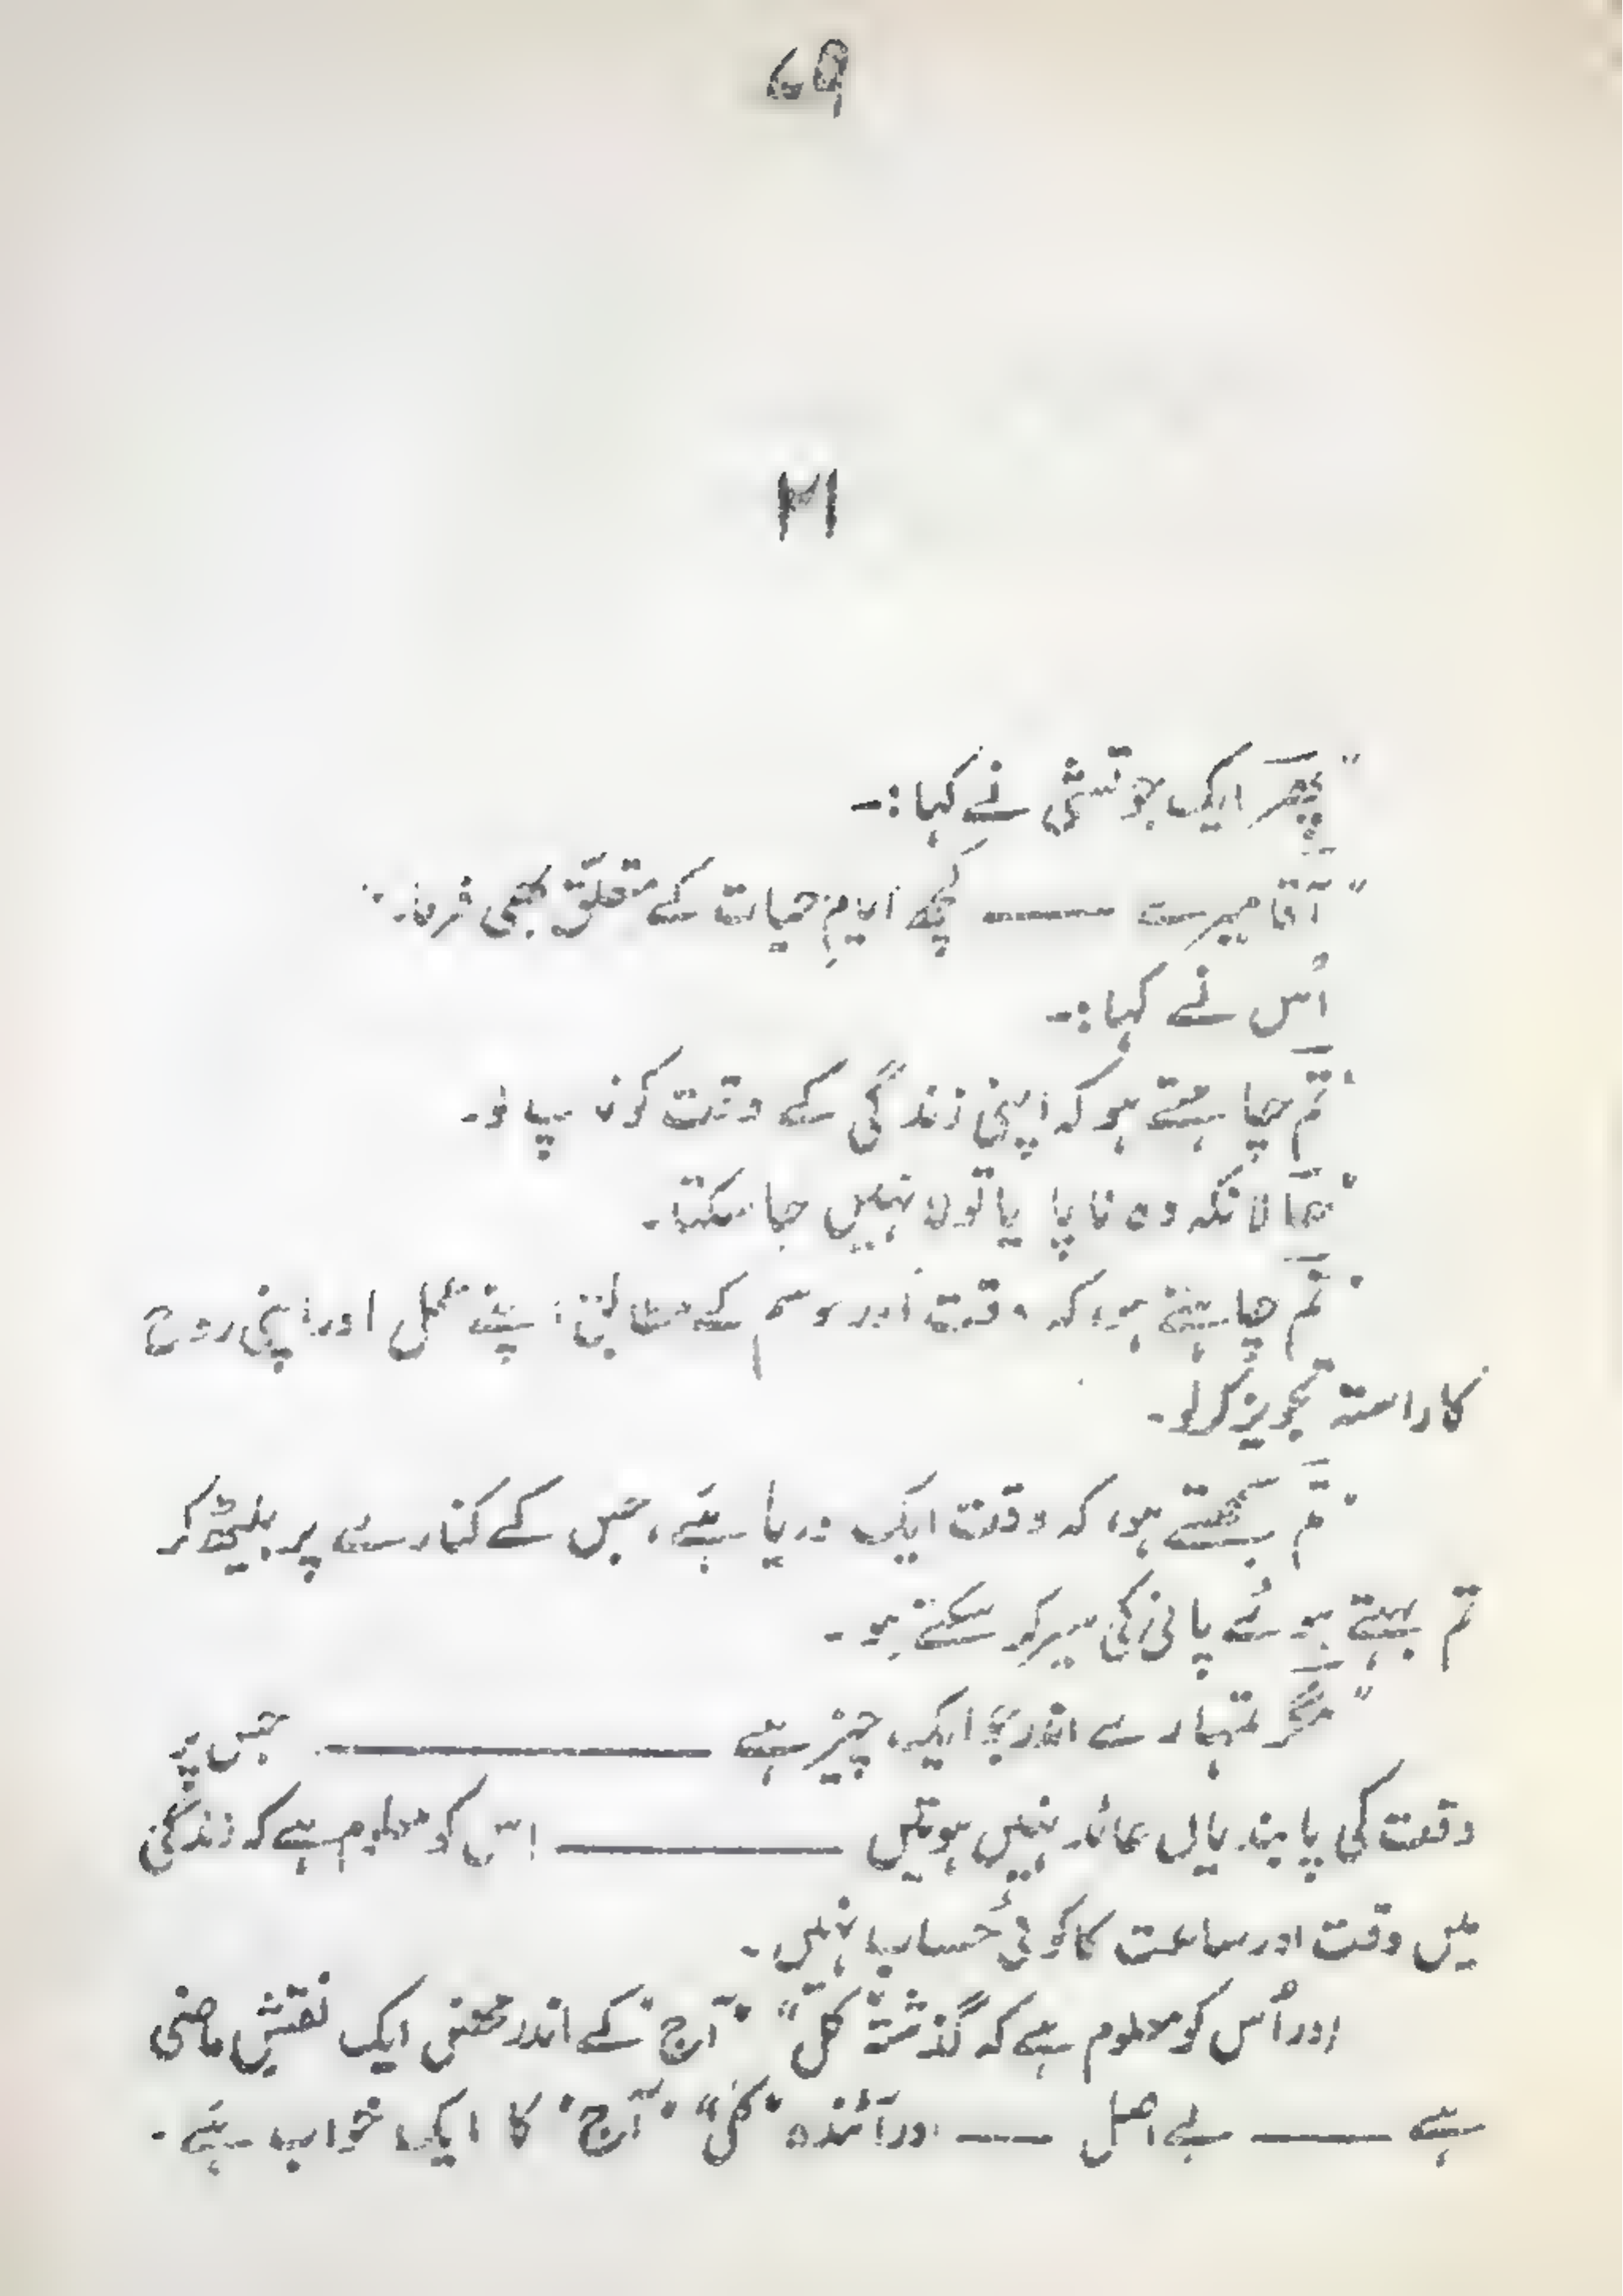 ۶۹
۲۱
"پھر ایک جوتشی نے کہا:۔
"آقا میرے ——— کچھ ایامِ حیات کے متعلق بھی فرماؤ۔"
اُس نے کہا:۔
"تم چاہتے ہو کہ اپنی زندگی کے وقت کو ناپ لو۔
"حالانکہ وہ ناپا یا تولا نہیں جا سکتا۔
"تم چاہتے ہو، کہ وقت اور موسم کے مطابق اپنے عمل اور اپنی روح
کا راستہ تجویز کر لو۔
"تم سمجھتے ہو، کہ وقت ایک دریا ہے، جس کے کنارے پر بیٹھ کر
تم بہتے ہوئے پانی کی سیر کر سکتے ہو۔
"مگر تمہارے اندر ایک چیز ہے ——————— جس پر
وقت کی پابندیاں عائد نہیں ہوتیں ——————— اس کو معلوم ہے کہ زندگی
میں وقت اور ساعت کا کوئی حساب نہیں۔
اور اُس کو معلوم ہے کہ گذشتہ کل" "آج" کے اندر مخفی ایک نقشِ ماضی
ہے ——— بے اصل ——— اور آئندہ "کل" "آج" کا ایک خواب ہے۔